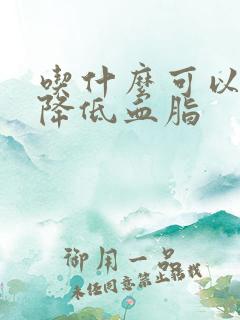 喫什麼可以
降低血脂
御用一品
未经同意禁止转载